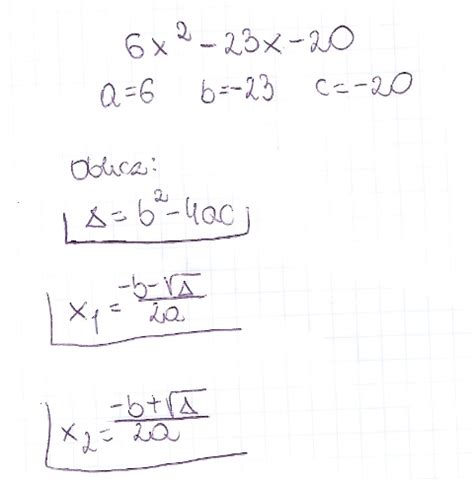 6x² - 23x - 20
a=6 b=-23 c=-20
Oblicz:
Δ = b² - 4ac
x₁ = (-b-√Δ)/2a
x₂ = (-b+√Δ)/2a